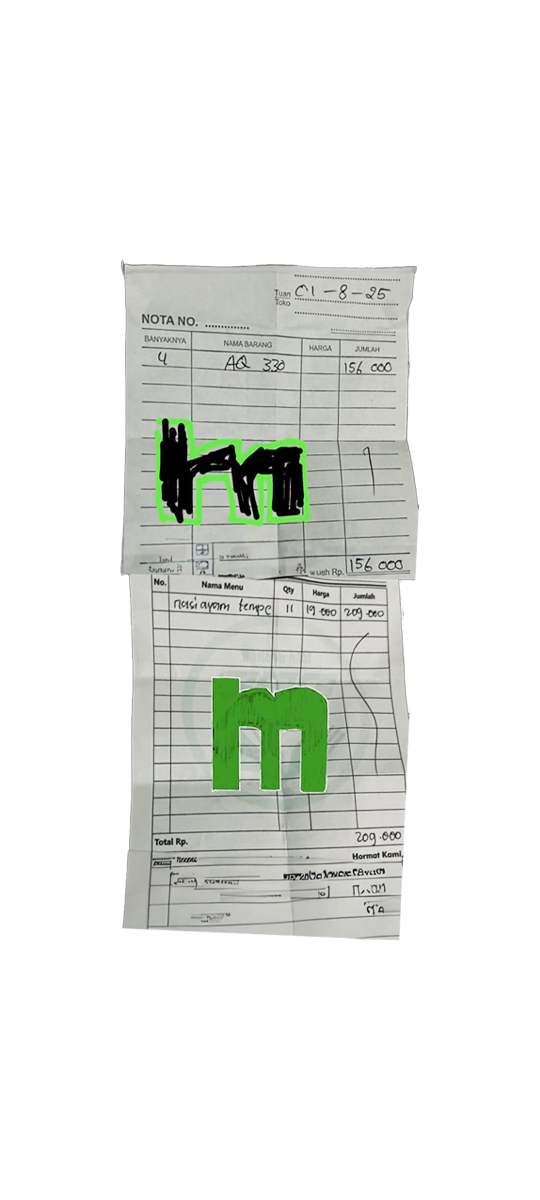 Tuan 01-8-25
Toko
NOTA NO. ..............
BANYAKNYA NAMA BARANG HARGA JUMLAH
4 AQ 330 156 000
m
Rp. 156 000
No. Nama Menu Qty Harga Jumlah
nasi ayam tempe 11 19.000 209.000
m
Total Rp. 209.000
Hormat Kami,